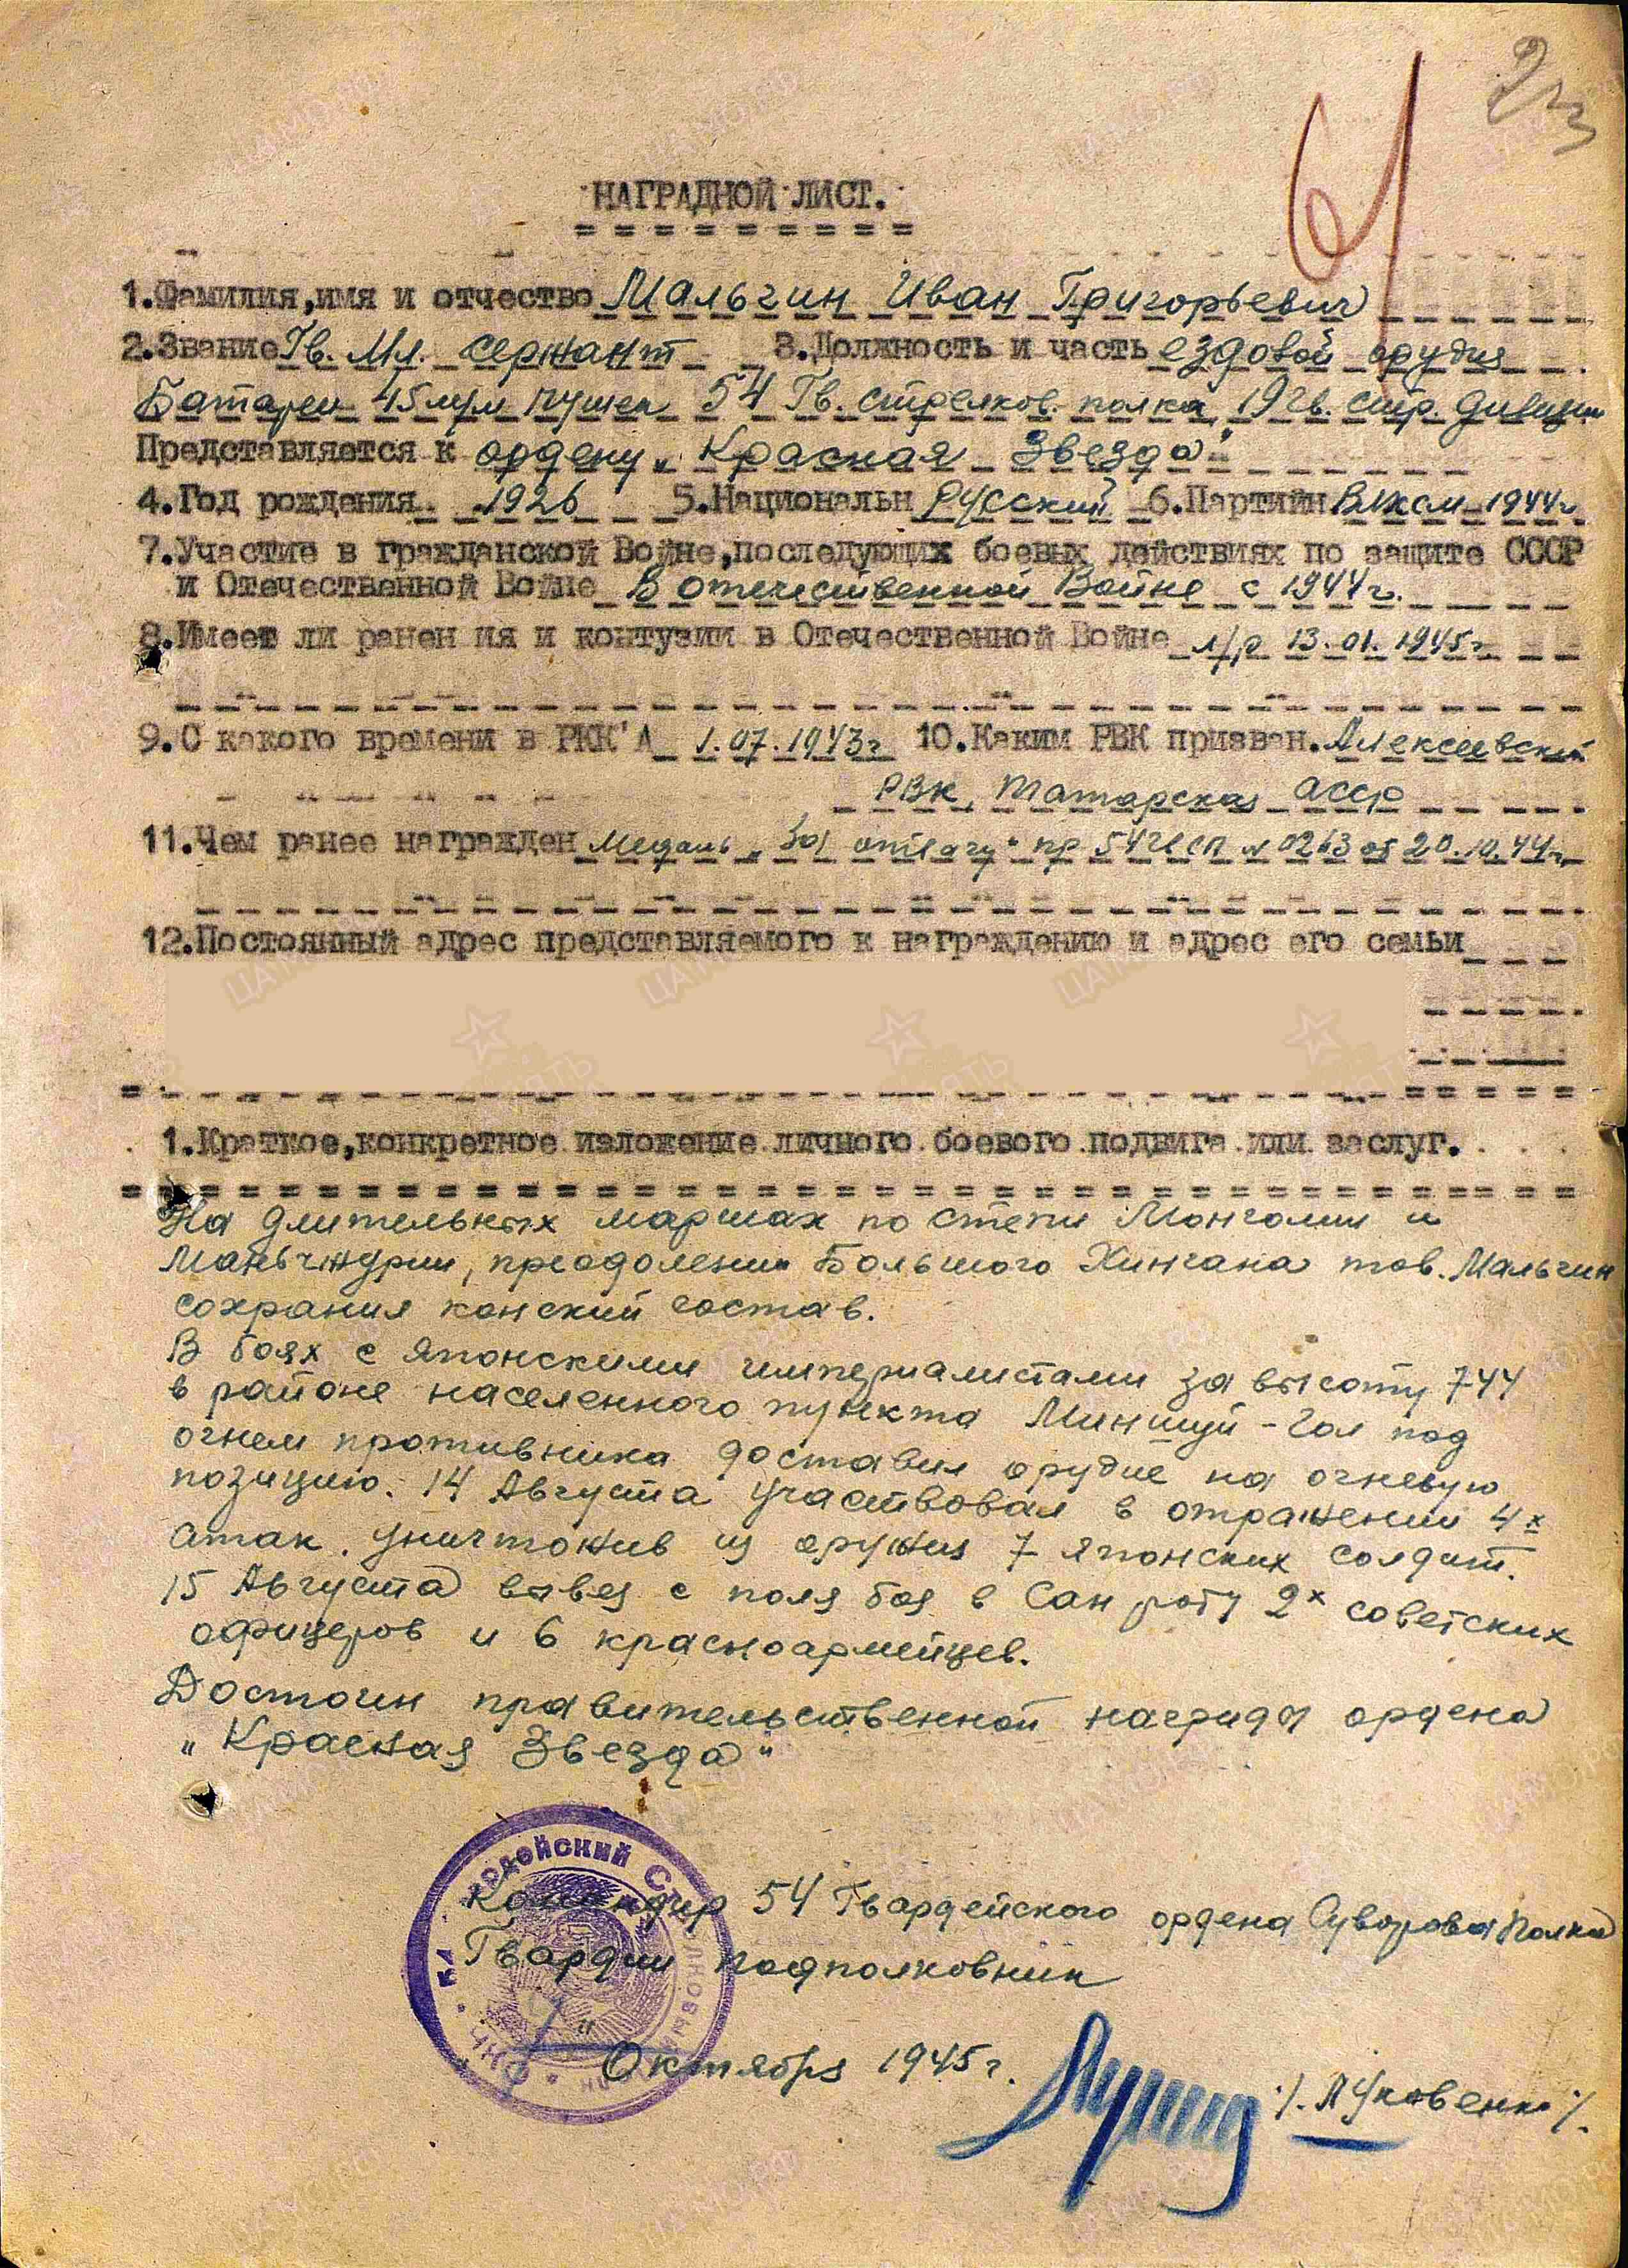 61
НАГРАДНОЙ ЛИСТ.
1.Фамилия,имя и отчество Мальгин Иван Григорьевич
2.Звание Гв. Мл. сержант 3.Должность и часть ездовой орудия
Батареи 45 м/м пушек 54 Гв. стрелков. полка, 19 Гв. стр. дивизии
Представляется к ордену „Красная Звезда"
4.Год рождения 1926 5.Национальн Русский 6.Партийн ВЛКСМ 1944г
7.Участие в гражданской Войне,последующих боевых действиях по защите СССР
и Отечественной Войне В отечественной Войне с 1944г.
8.Имеет ли ранен ия и контузии в Отечественной Войне л/р 13.01.1945г
9.С какого времени в РКК'А 1.07.1943г 10.Каким РВК призван. Алексеевский
РВК, Татарская АССР
11.Чем ранее награжден Медаль „За отвагу" пр 54 ГвСП № 0263 от 20.10.44г.
12.Постоянный адрес представляемого к награждению и адрес его семьи
1.Краткое,конкретное изложение личного боевого подвига или заслуг.
На длительных маршах по степи Монголии и
Маньчжурии, преодолении Большого Хингана тов. Мальгин
сохранил конский состав.
В боях с японскими империалистами за высоту 744
в районе населенного пункта Миншуй-Гол под
огнем противника доставил орудие на огневую
позицию. 14 Августа участвовал в отражении 4х
атак. уничтожив из оружия 7 японских солдат.
15 Августа вывез с поля боя в Сан роту 2х советских
офицеров и 6 красноармейцев.
Достоин правительственной награды ордена
„Красная Звезда"
Командир 54 Гвардейского ордена Суворова полка
Гвардии подполковник
" Октября 1945г.
/. Луковенко /.